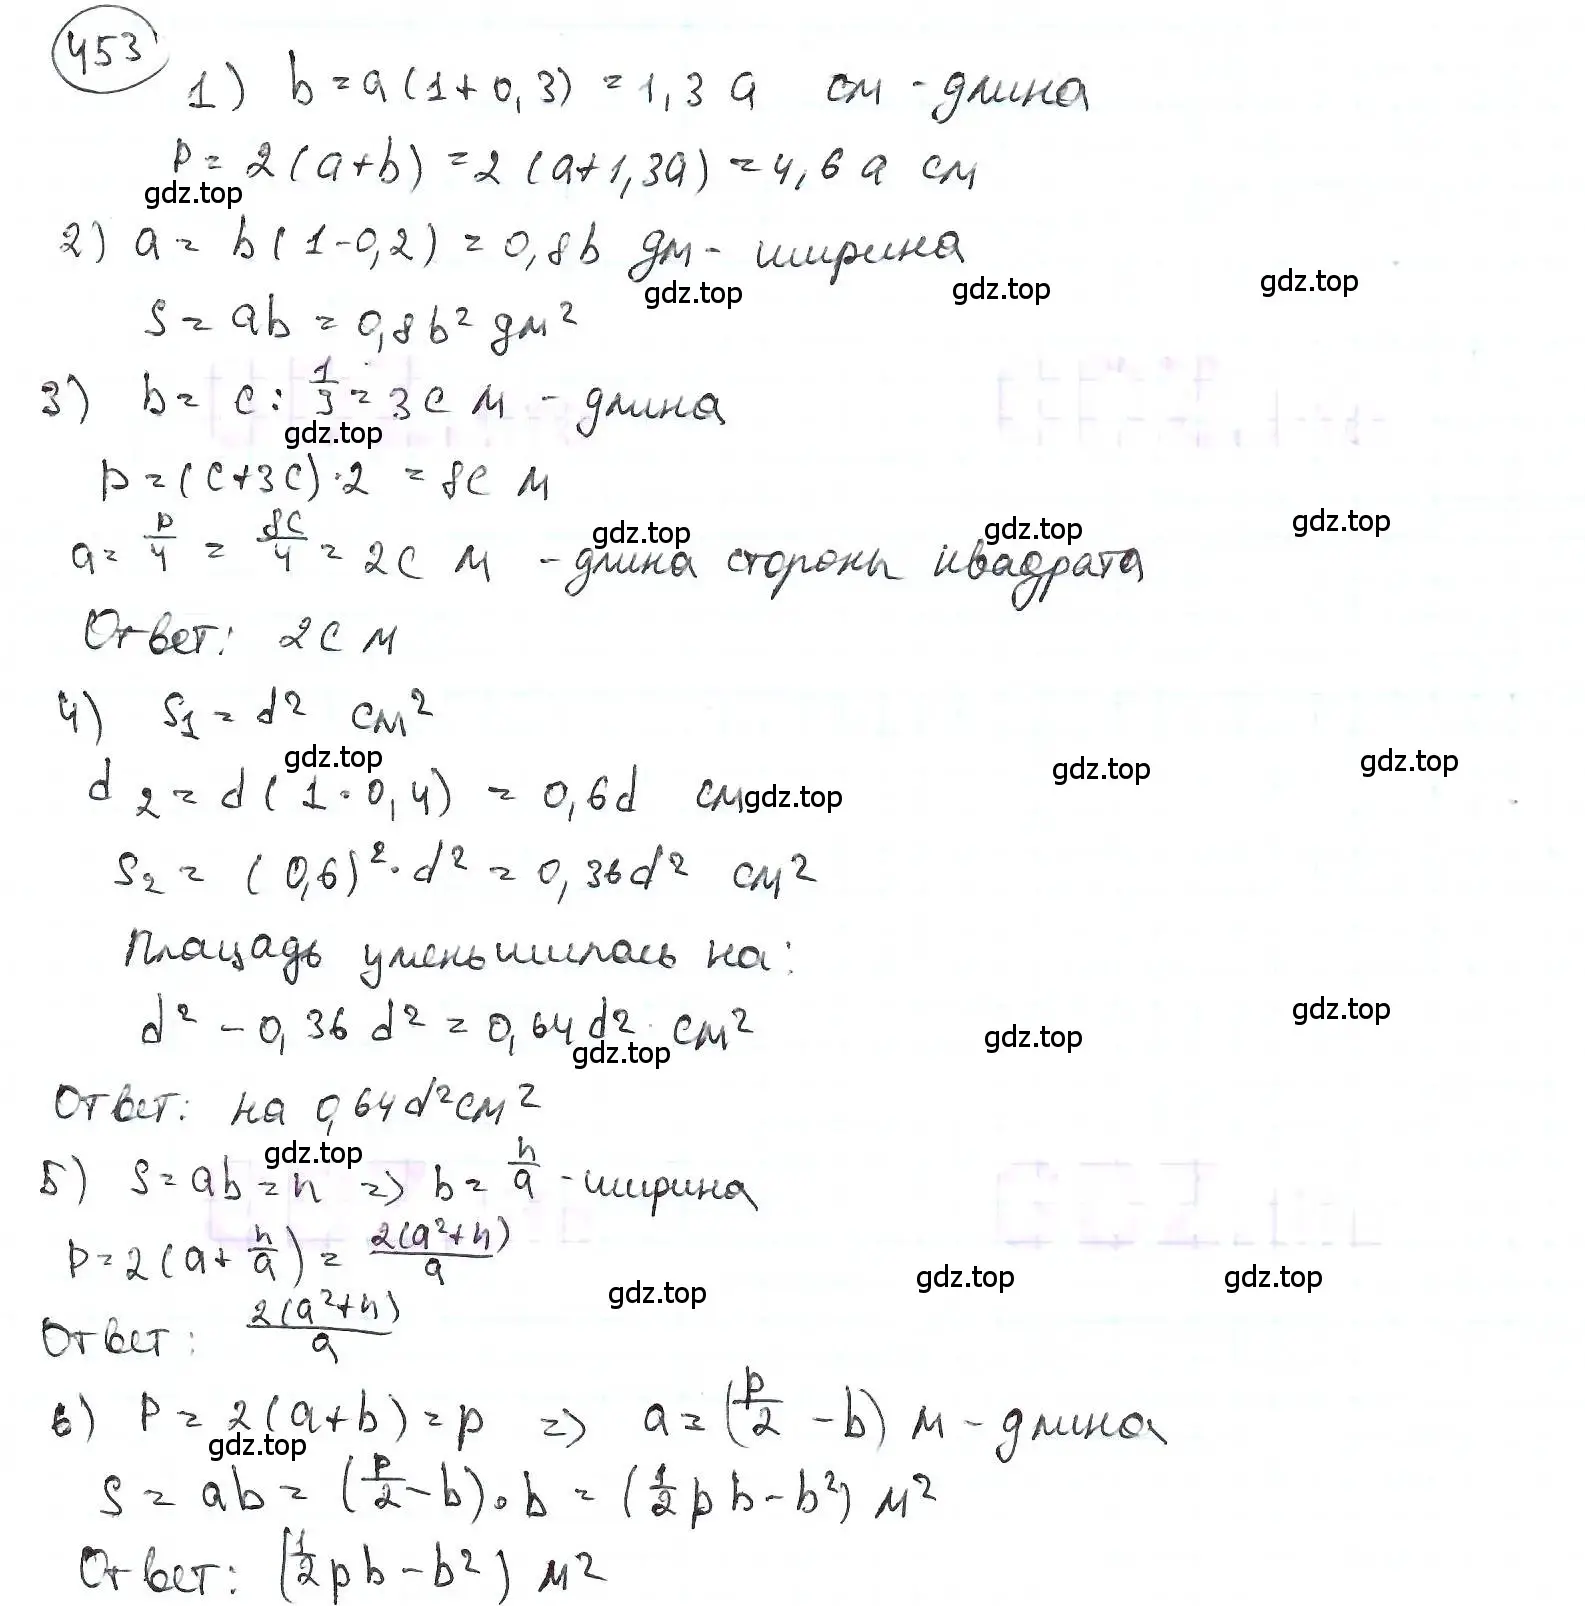 453
1) b = a(1+0,3) = 1,3 a см - длина
P = 2(a+b) = 2(a+1,3a) = 4,6 a см
gdz.top
2) a = b(1-0,2) = 0,8b дм - ширина
gdz.top gdz.top gdz.top
S = ab = 0,8b² дм²
3) b = c : 1/3 = 3c м - длина
gdz.top
p = (c+3c)·2 = 8c м
gdz.top gdz.top gdz.top
a = p/4 = 8c/4 = 2c м - длина стороны квадрата
Ответ: 2c м
4) S₁ = d² см²
gdz.top gdz.top gdz.top
d₂ = d(1-0,4) = 0,6d см
gdz.top
S₂ = (0,6)²·d² = 0,36d² см²
Площадь уменьшилась на:
d² - 0,36 d² = 0,64d² см²
gdz.top gdz.top gdz.top
Ответ: на 0,64d² см²
gdz.top
5) S = ab = n => b = n/a - ширина
P = 2(a + n/a) = 2(a²+n)/a
gdz.top gdz.top gdz.top
Ответ: 2(a²+n)/a
6) P = 2(a+b) = p => a = (p/2 - b) м - длина
gdz.top
S = ab = (p/2 - b)·b = (1/2 pb - b²) м²
Ответ: (1/2 pb - b²) м²